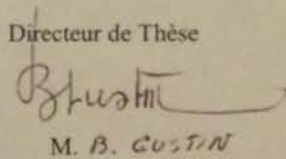 Directeur de Thèse
M. B. GUSTIN